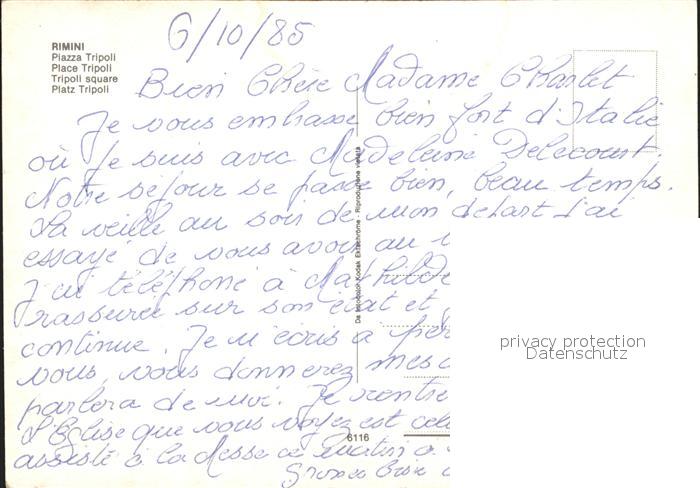 6/10/85
RIMINI
Piazza Tripoli
Place Tripoli
Tripoli square
Platz Tripoli
Bien Chère Madame Charlet
Je vous embrasse bien fort d'Italie
où je suis avec Madeleine Delecourt.
Notre séjour se passe bien, beau temps.
La veille au soir de mon départ j'ai
essayé de vous avoir au
J'ai téléphoné à Mathilde
rassurée sur son état et
continue. Je m'écris à
vous, vous donnerez mes
parlera de moi. Je rentre
L'Eglise que vous voyez est
assisté à la Messe ce matin à
Grosses bises
Da ektacolor Kodak Ektachrome - Riproduzione vietata
6116
privacy protection
Datenschutz